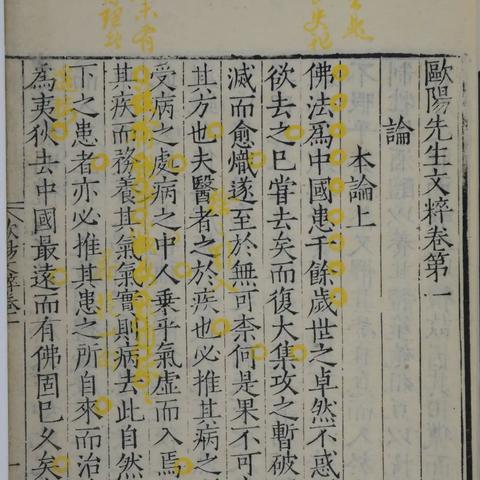 歐陽先生文粹卷第一
論
本論上
佛法爲中國患千餘歲世之卓然不惑
欲去之已甞去矣而復大集攻之暫破
滅而愈熾遂至於無可柰何是果不可
其方也夫醫者之於疾也必推其病之
受病之處病之中人乗乎氣虛而入焉
其疾而務養其氣氣實則病去此自然
下之患者亦必推其患之所自來而治
為夷狄去中國最遠而有佛固已久矣